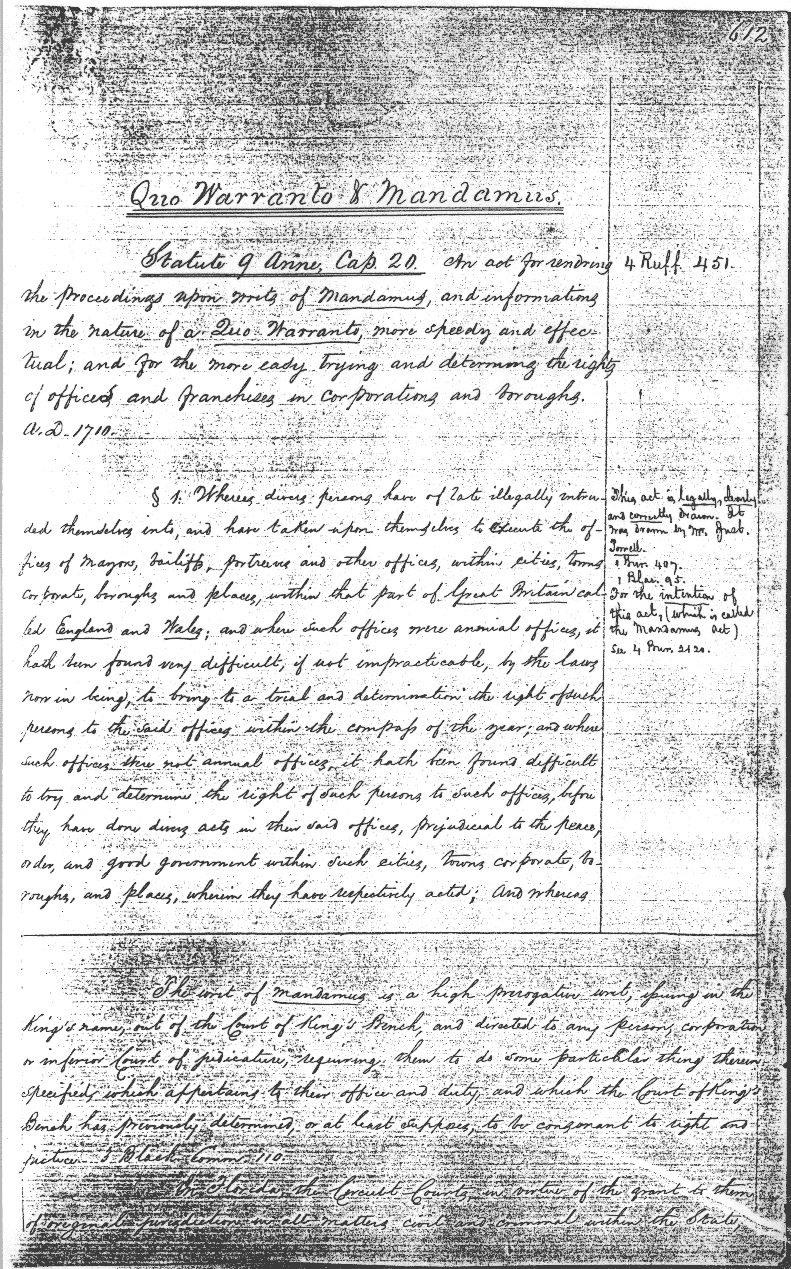 612
Quo Warranto & Mandamus.
Statute 9 Anne, Cap. 20. An act for rendring
4 Ruff. 451.
the proceedings upon writs of Mandamus, and informations
in the nature of a Quo Warranto, more speedy and effec-
tual; and for the more easy trying and determining the rights
of offices and franchises in corporations and boroughs.
A. D. 1710.
§ 1. Whereas divers persons have of late illegally intru-
ded themselves into, and have taken upon themselves to execute the of-
fices of mayors, bailiffs, portreeves and other offices, within cities, towns
corporate, boroughs and places, within that part of Great Britain cal
led England and Wales; and where such offices were annual offices, it
hath been found very difficult, if not impracticable, by the laws
now in being, to bring to a trial and determination the right of such
persons to the said offices within the compass of the year; and where
such offices were not annual offices, it hath been found difficult
to try and determine the right of such persons to such offices, before
they have done divers acts in their said offices, prejudicial to the peace,
order, and good government within such cities, towns corporate, bo-
roughs, and places, wherein they have respectively acted; And whereas
This act is legally, clearly
and correctly drawn. It
was drawn by Mr. Just.
Powell.
1 Burr. 407.
1 Blac. 95.
For the intention of
this act, (which is called
the Mandamus act)
See 4 Burr. 2120.
The writ of mandamus is a high prerogative writ, issuing in the
King's name, out of the Court of King's Bench, and directed to any person, corporation
or inferior Court of judicature, requiring them to do some particular thing therein
specified, which appertains to their office and duty, and which the Court of King's
Bench has previously determined, or at least supposes, to be consonant to right and
justice. 3 Black. Comm. 110.
In Florida, the Circuit Courts, in virtue of the grant to them
of original jurisdiction in all matters civil and criminal within the State,